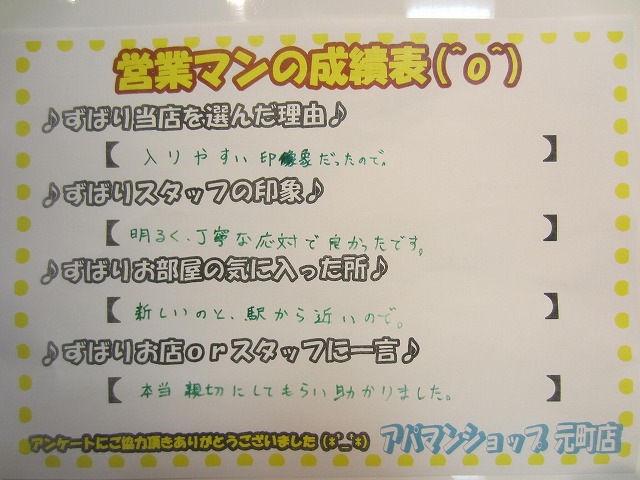 営業マンの成績表(^o^)
♪ずばり当店を選んだ理由♪
【 入りやすい印象だったので。 】
♪ずばりスタッフの印象♪
【 明るく、丁寧な応対で良かったです。 】
♪ずばりお部屋の気に入った所♪
【 新しいのと、駅から近いので。 】
♪ずばりお店orスタッフに一言♪
【 本当親切にしてもらい助かりました。 】
アンケートにご協力頂きありがとうございました(*^_^*)
アパマンショップ 元町店